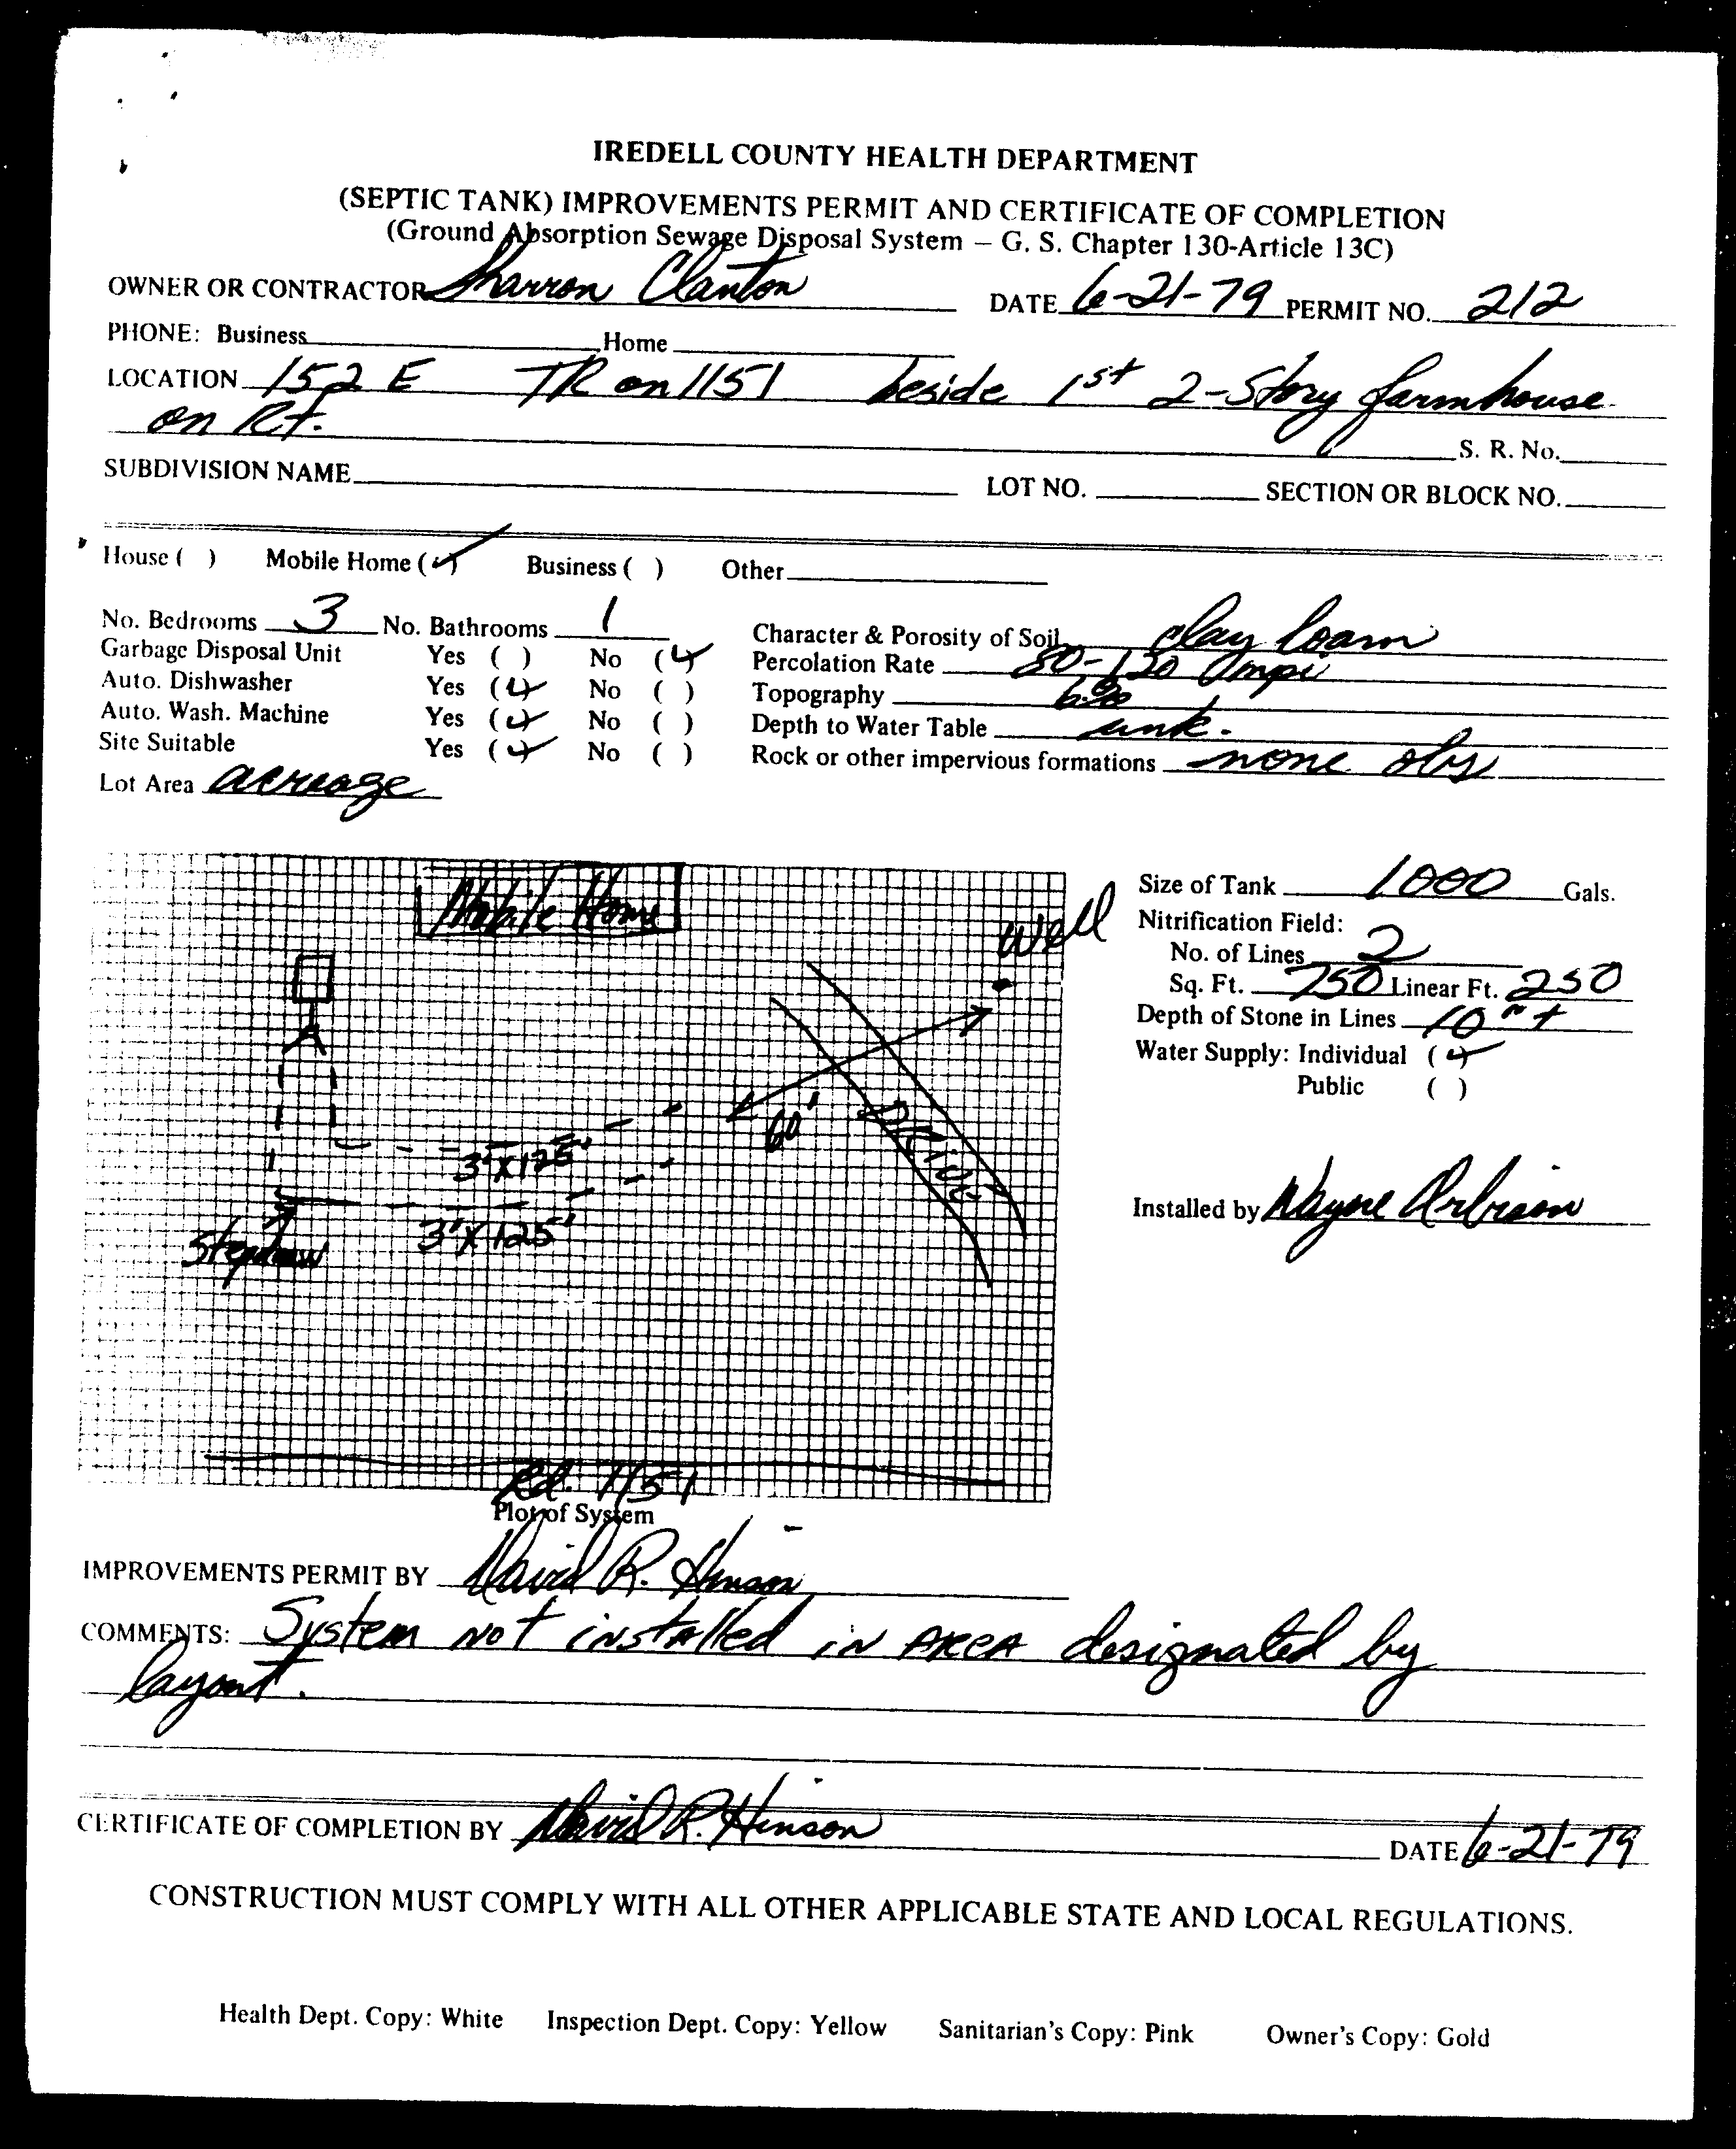 IREDELL COUNTY HEALTH DEPARTMENT
(SEPTIC TANK) IMPROVEMENTS PERMIT AND CERTIFICATE OF COMPLETION
(Ground Absorption Sewage Disposal System – G. S. Chapter 130-Article 13C)
OWNER OR CONTRACTOR Sharron Clanton DATE 6-21-79 PERMIT NO. 212
PHONE: Business Home
LOCATION 152 E TR on 1151 beside 1st 2-Story farmhouse
on Rt.
S. R. No.
SUBDIVISION NAME LOT NO. SECTION OR BLOCK NO.
House ( ) Mobile Home (✓) Business ( ) Other
No. Bedrooms 3 No. Bathrooms 1 Character & Porosity of Soil clay loam
Garbage Disposal Unit Yes ( ) No (✓) Percolation Rate 80-120 mpi
Auto. Dishwasher Yes (✓) No ( ) Topography 6%
Auto. Wash. Machine Yes (✓) No ( ) Depth to Water Table unk.
Site Suitable Yes (✓) No ( ) Rock or other impervious formations none obs
Lot Area acreage
Mobile Home
well
Size of Tank 1000 Gals.
Nitrification Field:
No. of Lines 2
Sq. Ft. 750 Linear Ft. 250
Depth of Stone in Lines 10"+
Water Supply: Individual (✓)
Public ( )
60'
DRIVE
3'X125'
3'X125'
Stepdown
Installed by Wayne
Rd. 1151
Plot of System
IMPROVEMENTS PERMIT BY David R. Hinson
COMMENTS: System not installed in AREA designated by
layout.
CERTIFICATE OF COMPLETION BY David R. Hinson DATE 6-21-79
CONSTRUCTION MUST COMPLY WITH ALL OTHER APPLICABLE STATE AND LOCAL REGULATIONS.
Health Dept. Copy: White Inspection Dept. Copy: Yellow Sanitarian's Copy: Pink Owner's Copy: Gold